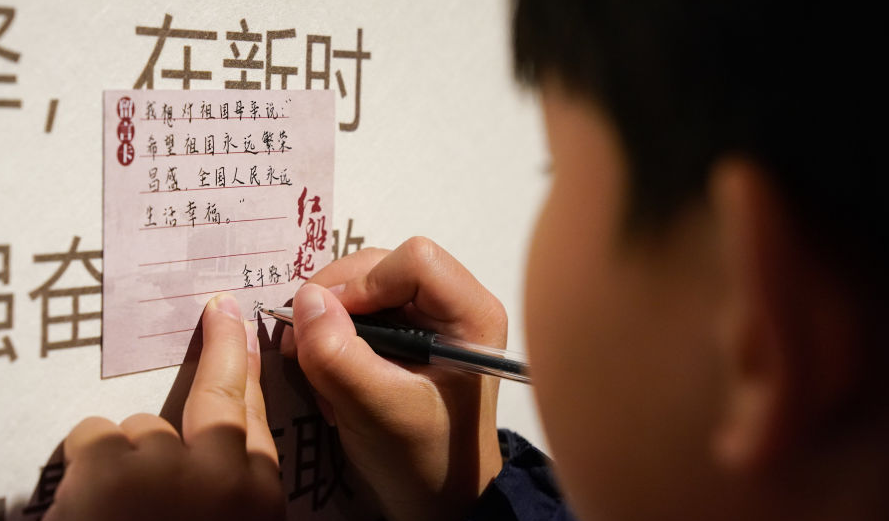 ，在新时
留言卡
我想对祖国母亲说：“
希望祖国永远繁荣
昌盛，全国人民永远
生活幸福。”
红船起
金斗路小
强奋
取